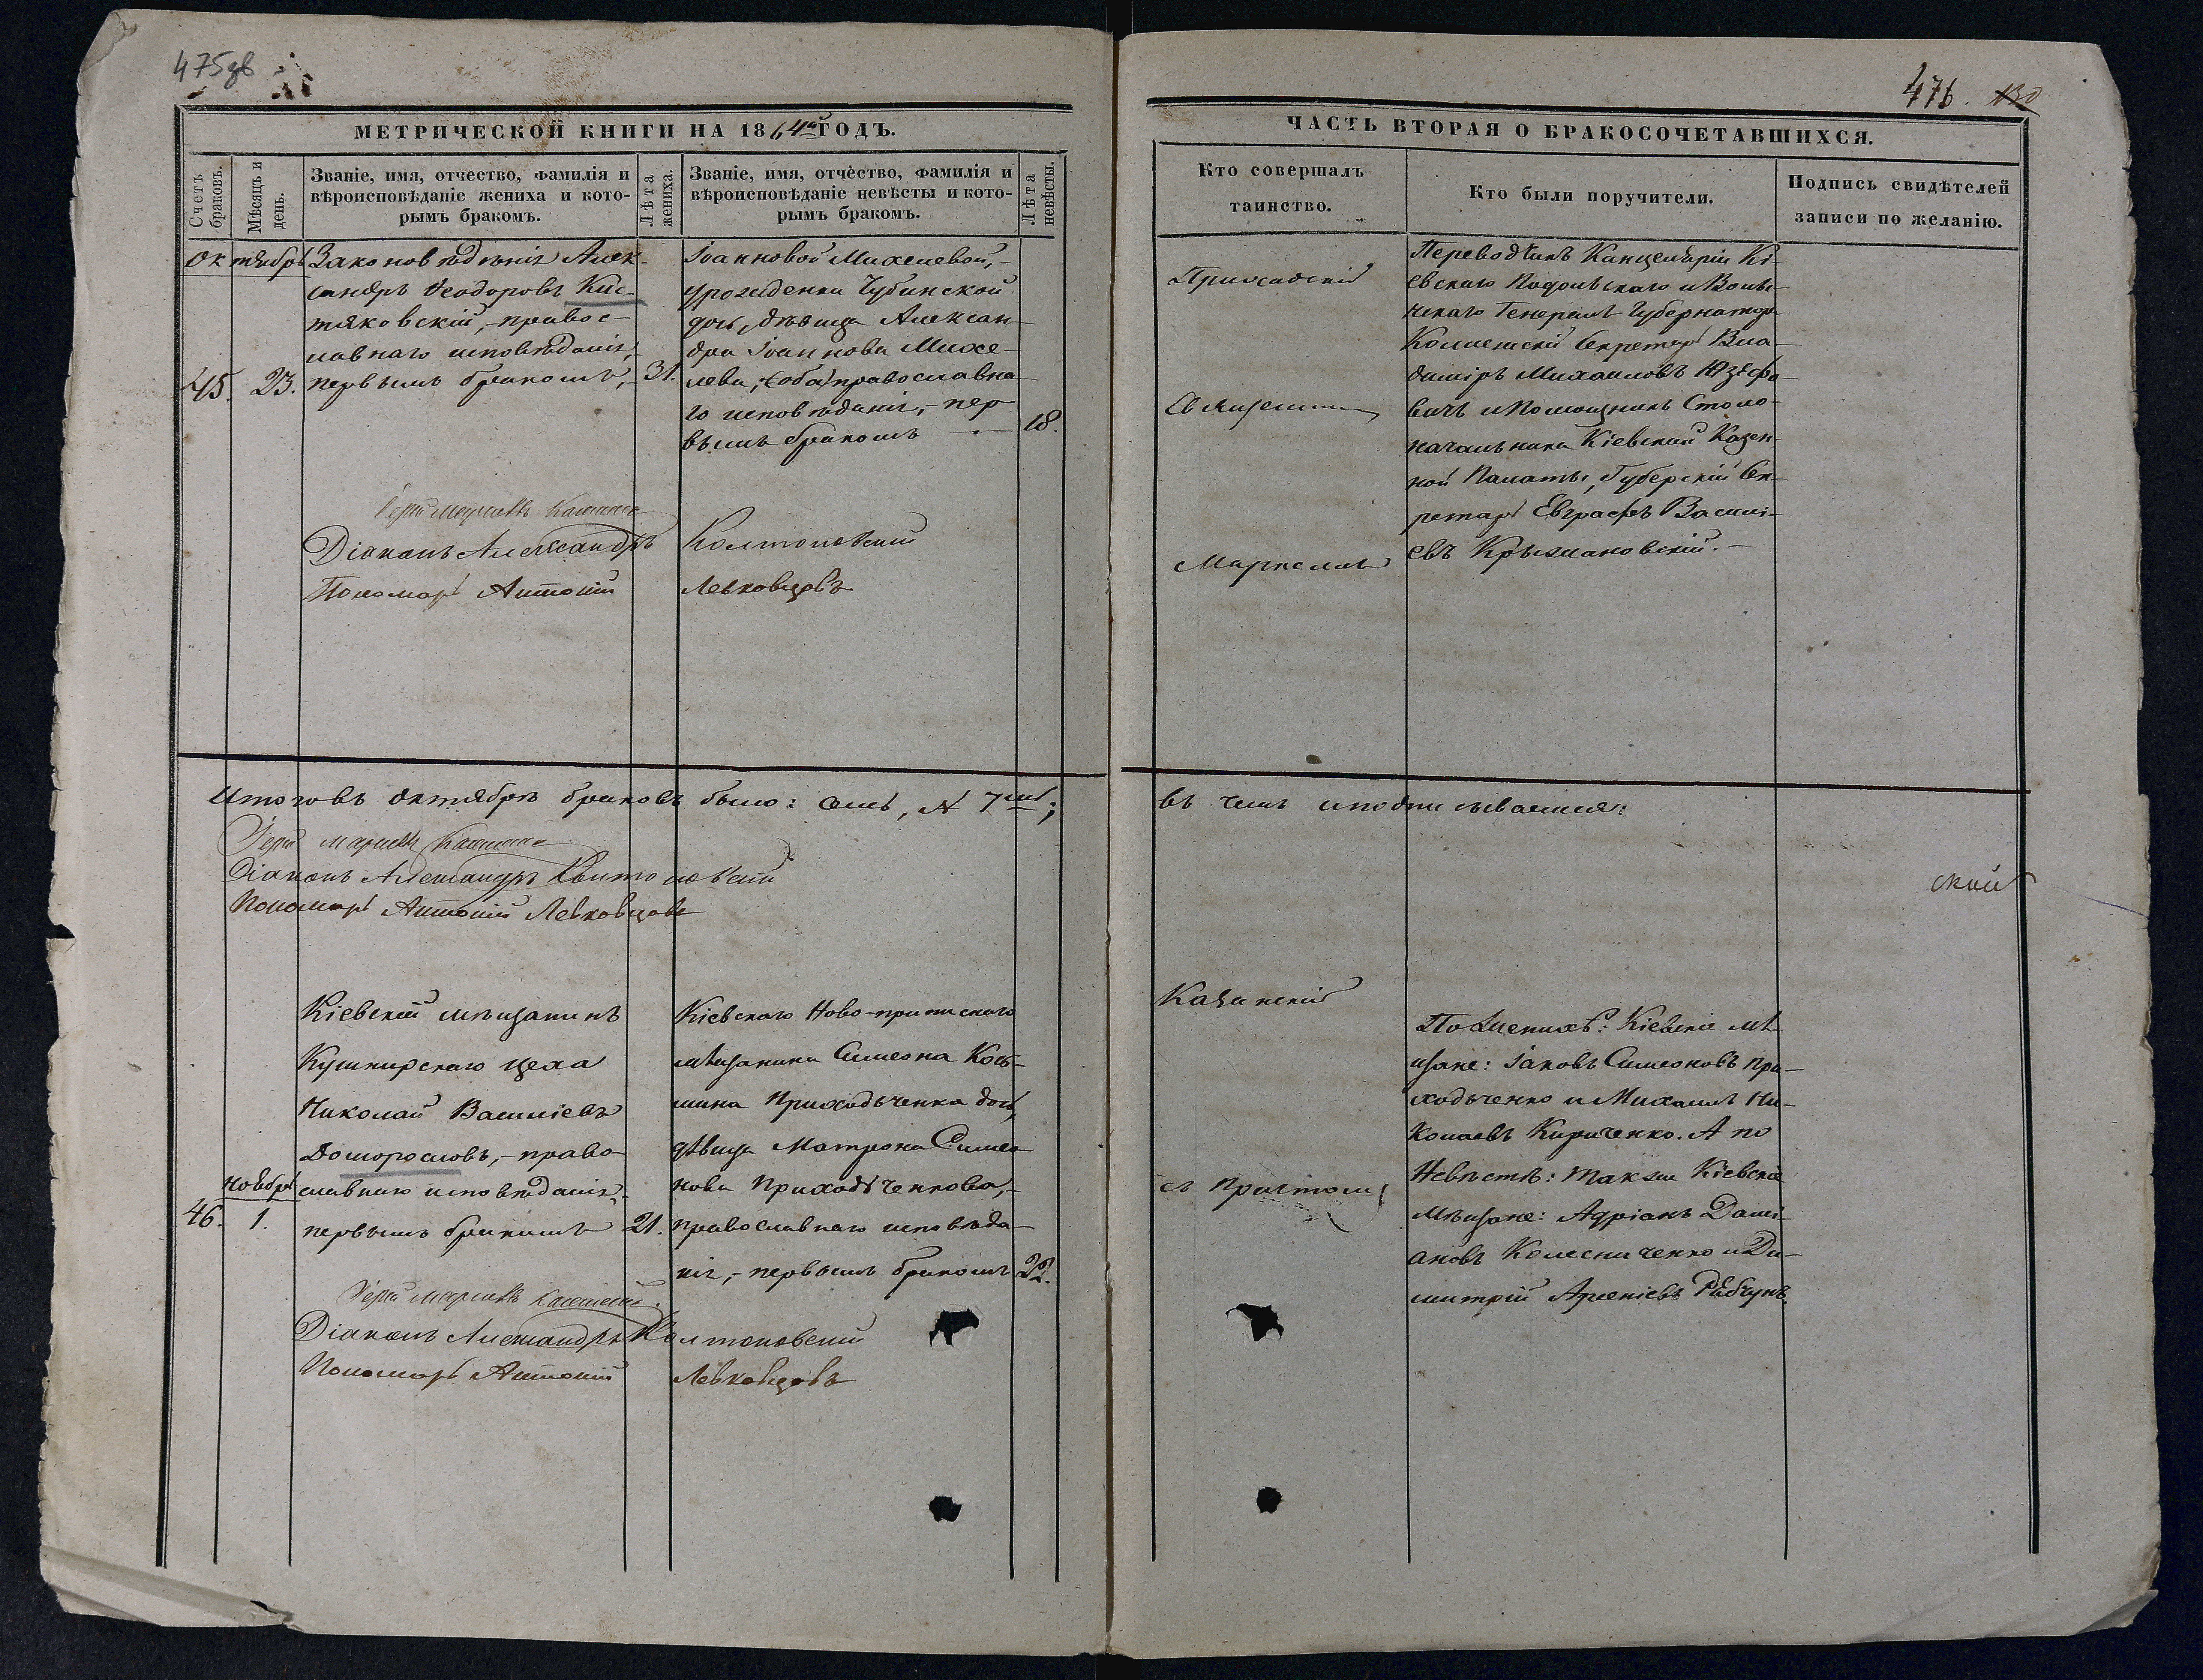 475зв
МЕТРИЧЕСКОЙ КНИГИ НА 1864й ГОДЪ.
Счетъ браковъ.
Мѣсяцъ и день.
Званіе, имя, отчество, фамилія и
вѣроисповѣданіе жениха и кото-
рымъ бракомъ.
Лѣта жениха.
Званіе, имя, отчество, фамилія и
вѣроисповѣданіе невѣсты и кото-
рымъ бракомъ.
Лѣта невѣсты.
Октябрь
45.
23.
Законовѣденія Алек-
сандръ Ѳеодоровъ Кис-
тяковскій, - правос-
лавнаго исповѣданія,
первымъ бракомъ,
31.
Іоанновой Михелевой,-
урожденки Чубинской
дочь, дѣвица Алексан-
дра Іоаннова Михе-
лева, (оба) православна-
го исповѣданія, - пер
вымъ бракомъ
18.
Діаконъ Александръ Колтоновскій
Пономарь Антоній Левковцовъ
Итого въ Октябрѣ браковъ было: семь, N 7мь;
Діаконъ Александръ Колтоновскій
Пономарь Антоній Левковцовъ
Ноябрь
46.
1.
Кіевскій мѣщанинъ
Кушнирскаго цеха
Николай Василіевъ
Доморословъ, - право-
славнаго исповѣданія,
первымъ бракомъ
21.
Кіевскаго Ново-приписнаго
мѣщанина Симеона Кось-
мина Приходьченка дочь,
дѣвица Матрона Симео
нова Приходьченкова,-
православнаго исповѣда-
нія, - первымъ бракомъ
22.
Діаконъ Александръ Колтоновскій
Пономарь Антоній Левковцовъ
476. 130
ЧАСТЬ ВТОРАЯ О БРАКОСОЧЕТАВШИХСЯ.
Кто совершалъ
таинство.
Кто были поручители.
Подпись свидѣтелей
записи по желанію.
Приходскій
Священникъ
Маркеллъ
Переводчикъ Канцеляріи Кі-
евскаго Подольскаго и Волы-
нскаго Генералъ Губернатора
Коллежскій Секретарь Вла-
диміръ Михаиловъ Юзефо-
вичъ и Помощникъ Столо-
начальника Кіевской Казен-
ной Палаты, Губерскій Сек-
ретарь Евграфъ Василі-
евъ Крыжановскій.-
въ чемъ и подписываемся:
ской
Казанскій
съ причтомъ
По Женихѣ: Кіевскіе мѣ
щане: Іаковъ Симеоновъ При-
ходьченко и Михаилъ Ни-
колаевъ Кириченко. А по
Невѣстѣ: также Кіевскіе
Мѣщане: Адріанъ Дамі-
ановъ Колесниченко и Ди-
митрій Арсеніевъ Рябчунъ.